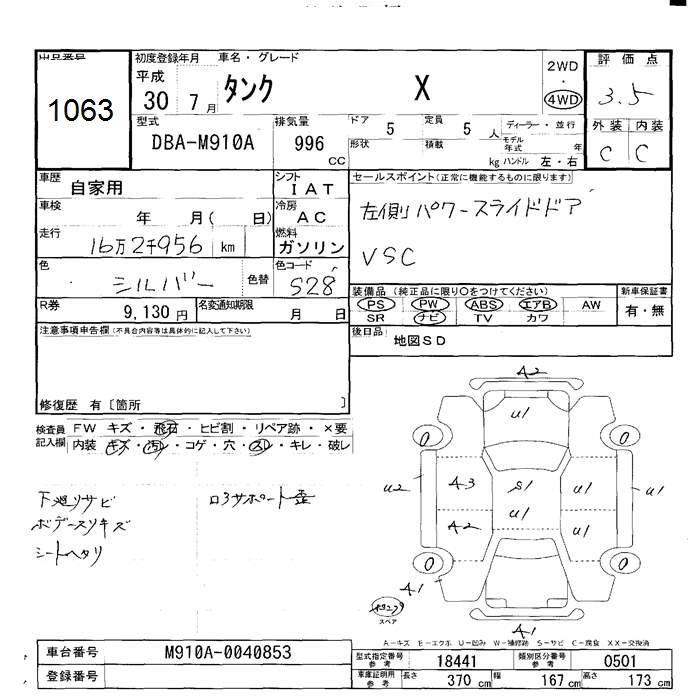 出品番号 初度登録年月 車名・グレード 評価点
1063 平成 30 7月 タンク X 2WD・4WD 3.5
型式 排気量 ドア 5 定員 5人 ディーラー・並行 外装 内装
DBA-M910A 996 CC 形状 積載 kg モデル年式 年 ハンドル 左・右 C C
車歴 自家用 シフト IAT セールスポイント(正常に機能するものに限ります)
車検 年 月( 日) 冷房 AC 左側パワースライドドア
走行 16万2千956 km 燃料 ガソリン VSC
色 シルバー 色替 色コード S28
装備品(純正品に限り○をつけてください) 新車保証書
R券 9,130円 名変通知期限 月 日 PS PW ABS エアB AW 有・無
SR ナビ TV カワ
注意事項申告欄(不具合内容等は具体的に記入して下さい) 後日品 地図SD
修復歴 有〔箇所 〕
検査員記入欄 FW キズ・飛石・ヒビ割・リペア跡・×要
内装 キズ・汚れ・コゲ・穴・スレ・キレ・破レ
下廻りサビ ロアサポート歪
ボデースリキズ
シートヘタリ
A2
U1
0 0
U2 A3 S1 U1 U1
A2 U1 U1
0 0
A1
スペア
A1
A-キズ E-エクボ U-凹み W-補修跡 S-サビ C-腐食 XX-交換済
車台番号 M910A-0040853 型式指定番号 参考 18441 類別区分番号 参考 0501
登録番号 車庫証明用 参考 長さ 370 cm 幅 167 cm 高さ 173 cm